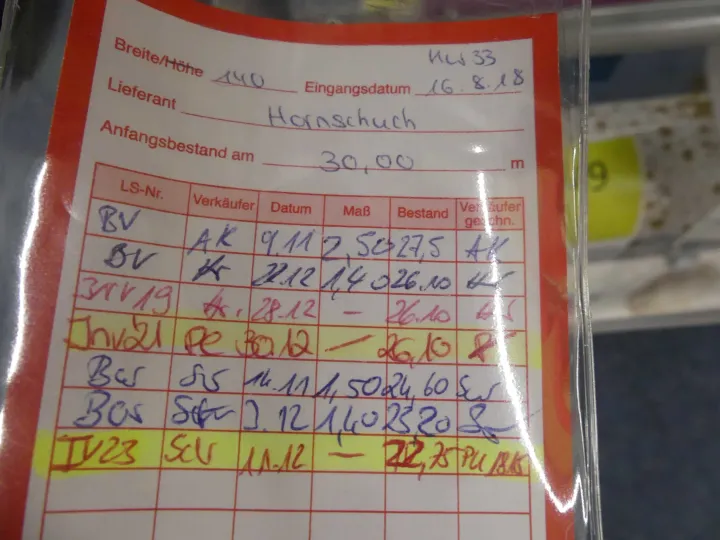 Breite/Höhe 140
Eingangsdatum 16.8.18
Lieferant Hornschuch
Anfangsbestand am 30,00 m
LS-Nr. Verkäufer Datum Maß Bestand Verkäufer geschn.
BV AK 9.11 2,50 27,5 AK
BV 22.12 1,40 26.10
28.12 — 26.10
Inv21 PE 30.12 — 26,10
14.11 1,50 24,60
3.12 1,40 23,20
IV23 11.12 — 22,75
9